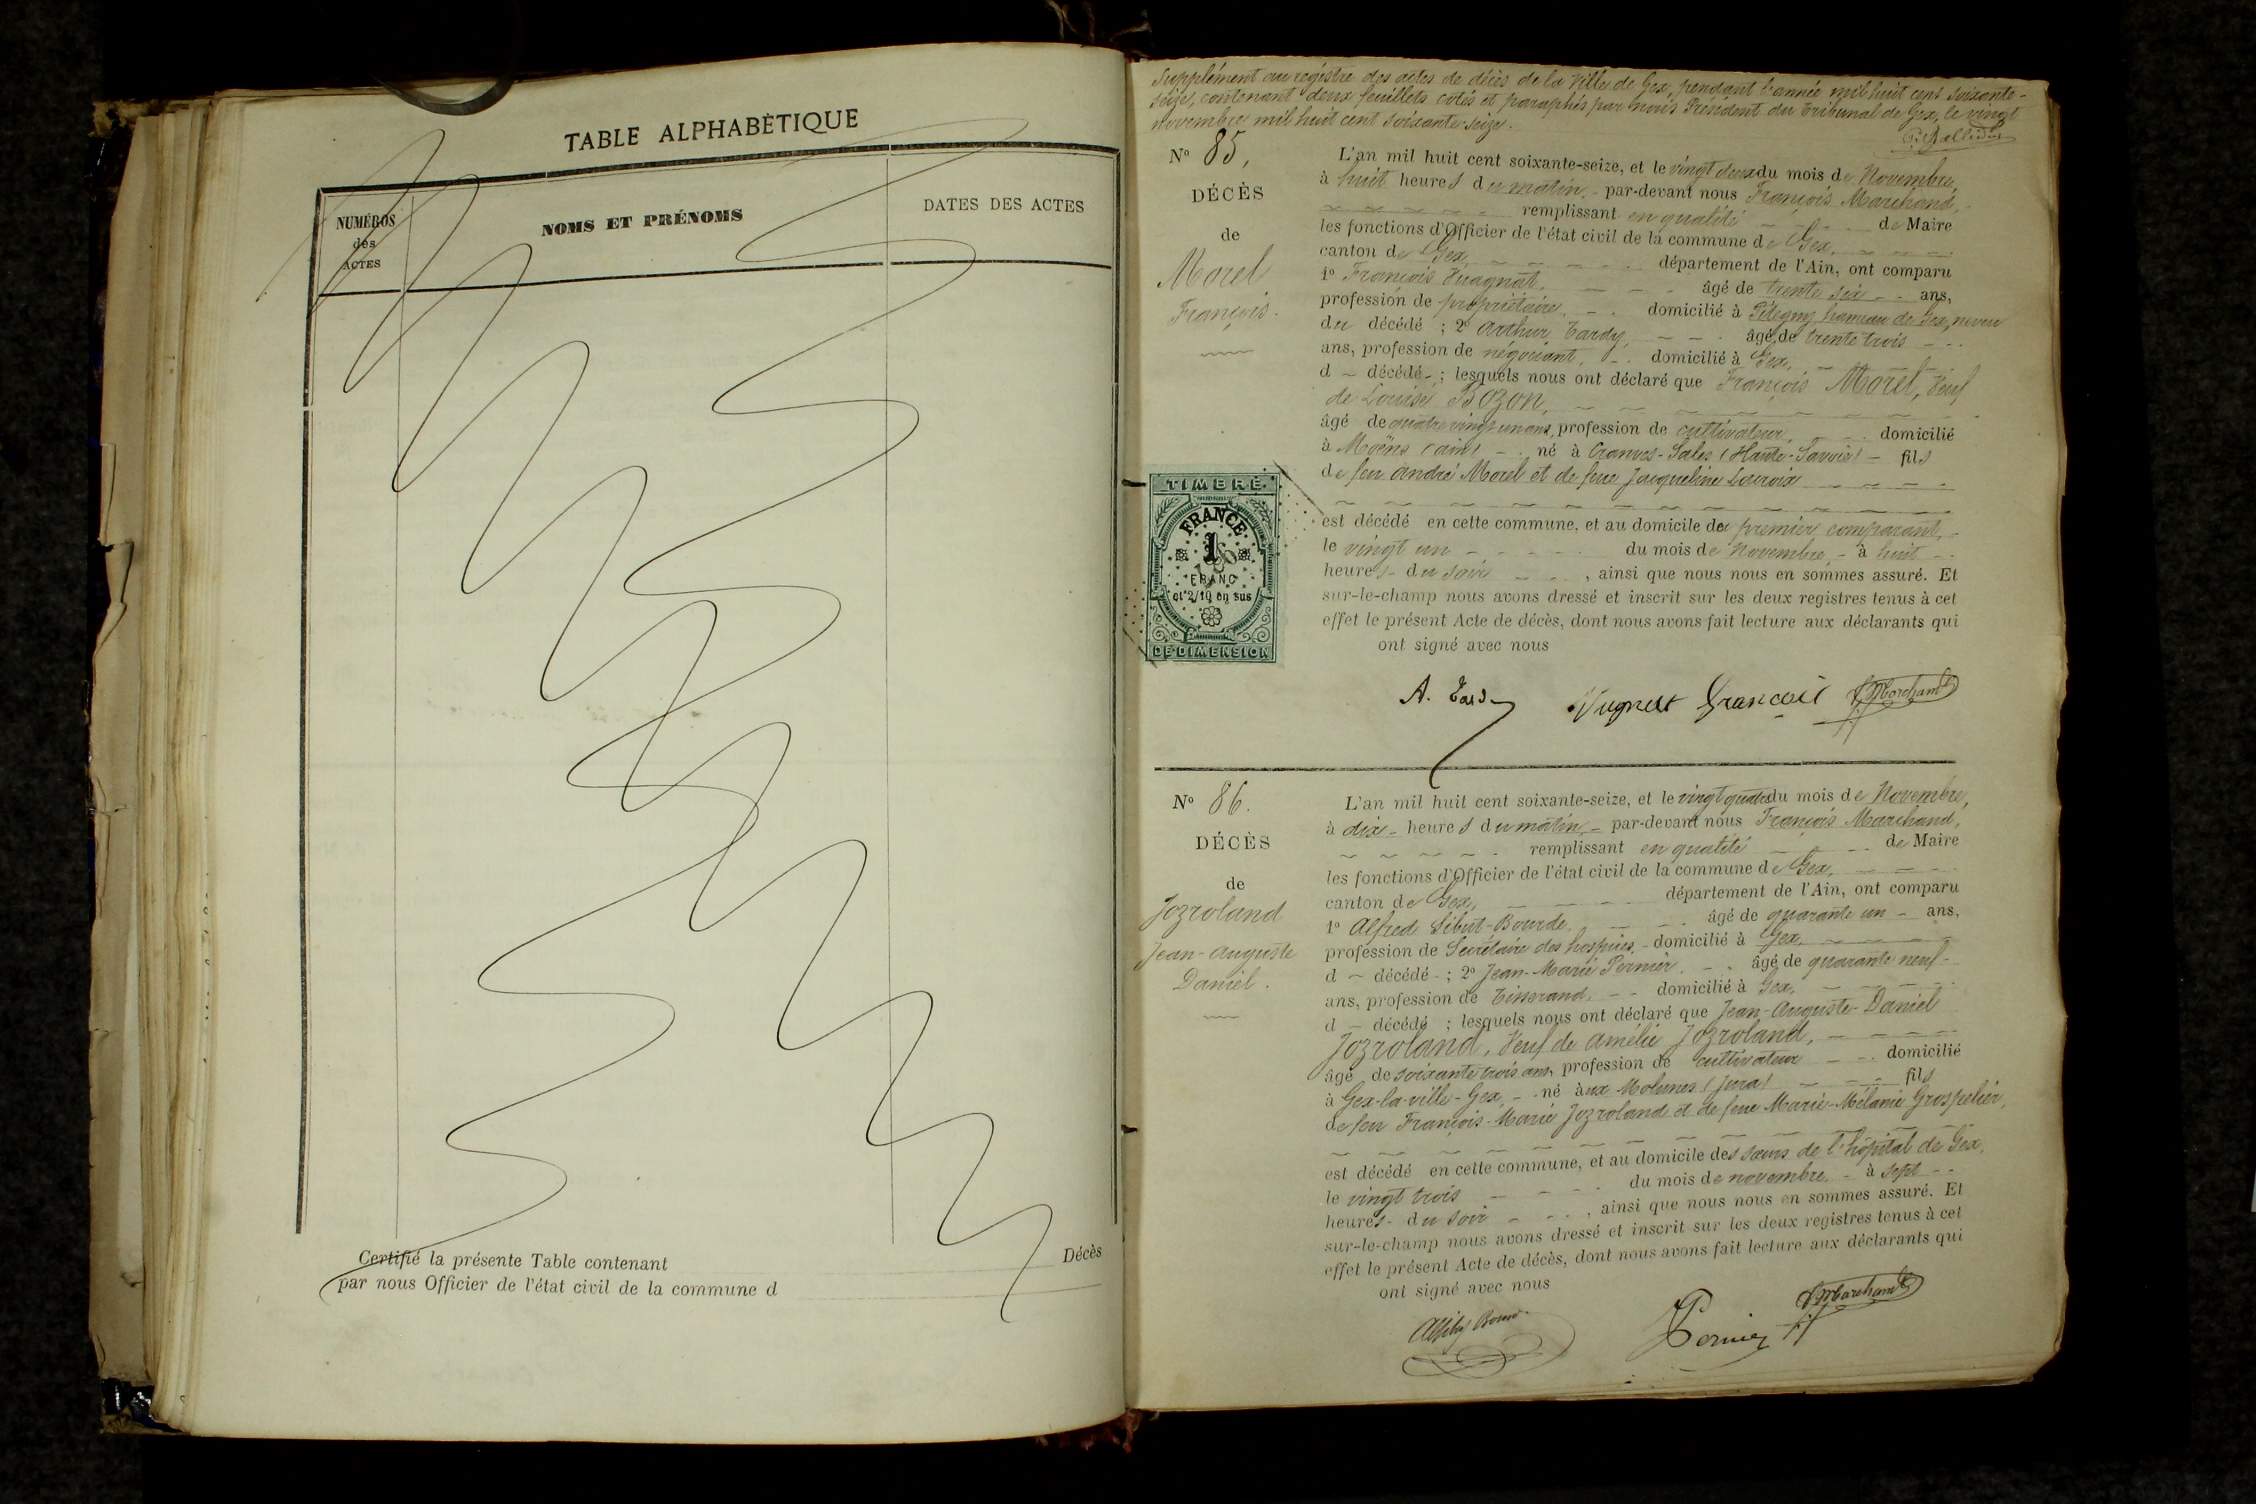 TABLE ALPHABÉTIQUE
NUMÉROS
des
ACTES
NOMS ET PRÉNOMS
DATES DES ACTES
Certifié la présente Table contenant Décès
par nous Officier de l'état civil de la commune d
Supplément au registre des actes de décès de la Ville de Gex, pendant l'année mil huit cent soixante-
seize, contenant deux feuillets cotés et paraphés par nous Président du Tribunal de Gex, le vingt
novembre mil huit cent soixante-seize.
N° 85,
DÉCÈS
de
Morel
François.
L'an mil huit cent soixante-seize, et le vingt deux du mois de Novembre,
à huit heures du matin, par-devant nous François Marchand,
remplissant en qualité de Maire
les fonctions d'Officier de l'état civil de la commune de Gex,
canton de Gex, département de l'Ain, ont comparu
1° François Vuagnat, âgé de trente six ans,
profession de propriétaire, domicilié à Pitegny, hameau de Gex, neveu
du décédé ; 2° Arthur Tardy, âgé de trente trois
ans, profession de négociant, domicilié à Gex,
d décédé ; lesquels nous ont déclaré que François Morel, Veuf
de Louise Bozon,
âgé de quatre vingt un ans, profession de cultivateur, domicilié
à Moëns (ain) né à Cranves-Sales (Haute-Savoie) fils
de feu André Morel et de feue Jacqueline Lacroix
est décédé en cette commune, et au domicile du premier comparant,
le vingt un du mois de novembre, à huit
heures du soir, ainsi que nous nous en sommes assuré. Et
sur-le-champ nous avons dressé et inscrit sur les deux registres tenus à cet
effet le présent Acte de décès, dont nous avons fait lecture aux déclarants qui
ont signé avec nous
TIMBRE
FRANCE
1
FRANC
et 2/10 en sus
DE DIMENSION
A. Tardy Vuagnat François Marchand
N° 86.
DÉCÈS
de
Jozroland
Jean-Auguste
Daniel.
L'an mil huit cent soixante-seize, et le vingt quatre du mois de Novembre,
à dix heures du matin, par-devant nous François Marchand,
remplissant en qualité de Maire
les fonctions d'Officier de l'état civil de la commune de Gex,
canton de Gex, département de l'Ain, ont comparu
1° Alfred Sibut-Bourde, âgé de quarante un ans,
profession de Secrétaire des hospices, domicilié à Gex,
d décédé ; 2° Jean-Marie Pernier, âgé de quarante neuf
ans, profession de Tisserand, domicilié à Gex,
d décédé ; lesquels nous ont déclaré que Jean-Auguste-Daniel
Jozroland, Veuf de Amélie Jozroland,
âgé de soixante trois ans, profession de cultivateur domicilié
à Gex-la-ville-Gex, né aux Molunes (Jura) fils
de feu François-Marie Jozroland et de feue Marie-Mélanie Grospelier,
est décédé en cette commune, et au domicile des sœurs de l'hôpital de Gex,
le vingt trois du mois de novembre à sept
heures du soir, ainsi que nous nous en sommes assuré. Et
sur-le-champ nous avons dressé et inscrit sur les deux registres tenus à cet
effet le présent Acte de décès, dont nous avons fait lecture aux déclarants qui
ont signé avec nous
Pernier Marchand